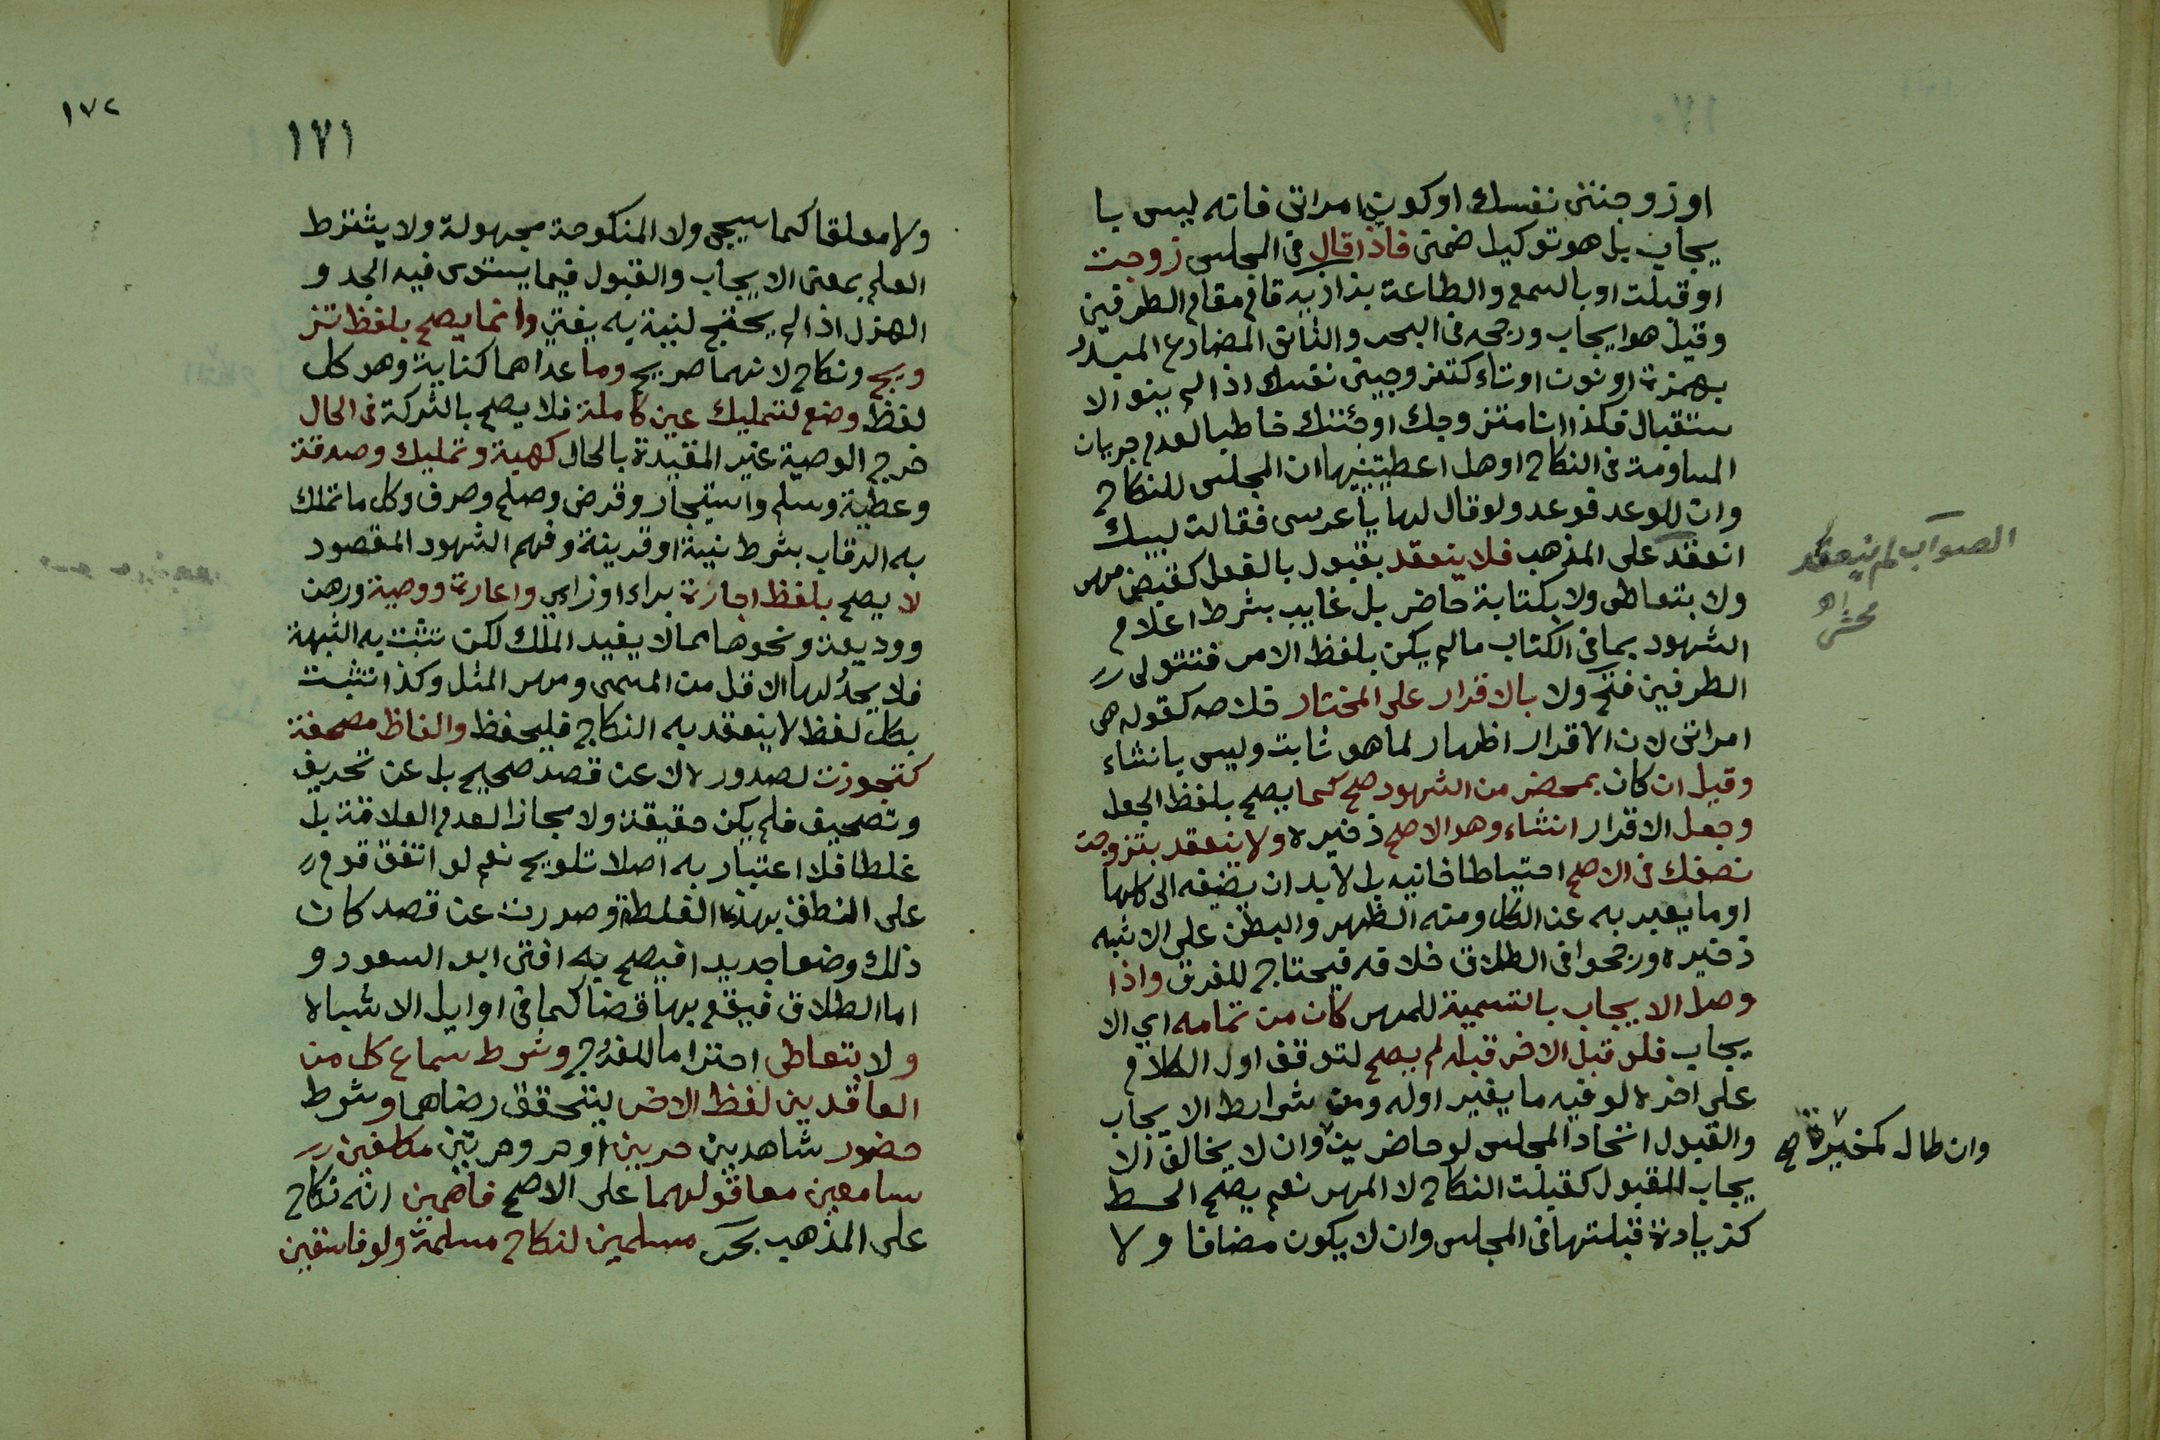 او زوجتنى نفسك او كونى امراتى فانه ليس با
يجاب بل هو توكيل ضمنى فاذا قال فى المجلس زوجت
او قبلت او بالسمع والطاعة بزازيه قام مقام الطرفين
وقيل هو ايجاب ورجحه فى البحر والثانى المضارع المبدؤ
بهمزة او نون او تاء كتزوجينى نفسك اذا لم ينو الا
ستقبال فكذا انا متزوجك او جئتك خاطبا لعدم جريان
المساومة فى النكاح او هل اعطيتنيها ان المجلس للنكاح
وان للوعد فوعد ولو قال لها يا عرسى فقالت لبيك
انعقد على المذهب فلا ينعقد بقبول بالفعل كقبض مهر
الصواب لم ينعقد
اهـ
محشى
ولا بتعاطى ولا بكتابة حاضر بل غايب بشرط اعلام
الشهود بما فى الكتاب ما لم يكن بلفظ الامر فتتولى
الطرفين فتح ولا بالاقرار على المختار خلاصه كقوله هى
امراتى لان الاقرار اظهار لما هو ثابت وليس بانشاء
وقيل ان كان بمحضر من الشهود صح كما يصح بلفظ الجعل
وجعل الاقرار انشاء وهو الاصح ذخيره ولا ينعقد بتزوجت
نصفك فى الاصح احتياطا خانيه بل لا بد ان يضيفه الى كلها
او ما يعبر به عن الكل ومنه الظهر والبطن على الاشبه
ذخيره ورجحوا فى الطلاق خلافه فيحتاج للفرق واذا
وصل الايجاب بالتسمية للمهر كان من تمامه اي الا
يجاب فلو قبل الاخر قبله لم يصح لتوقف اول الكلام
على اخره لو فيه ما يغير اوله ومن شرايط الايجاب
والقبول اتحاد المجلس لو حاضرين وان لا يخالف الا
وان طال كمخيرة صح
يجاب للقبول كقبلت النكاح لا المهر نعم يصح الحط
كزيادة قبلتها فى المجلس وان لا يكون مضافا ولا
١٧٢
١٧١
ولا معلقا كما سيجى ولا المنكوحة مجهولة ولا يشترط
العلم بمعنى الايجاب والقبول فيما يستوى فيه الجد و
الهزل اذا لم يحتج لنية به يفتى وانما يصح بلفظ تز
ويج ونكاح لانهما صريح وما عداهما كناية وهو كل
لفظ وضع لتمليك عين كاملة فلا يصح بالشركة فى الحال
خرج الوصية غير المقيدة بالحال كهبة وتمليك وصدقة
وعطية وسلم واستيجار وقرض وصلح وصرف وكل ما تملك
به الرقاب بشرط نية او قرينة وفهم الشهود المقصود
لا يصح بلفظ اجارة براء او زاي واعارة ووصية ورهن
ووديعة ونحوها مما لا يفيد الملك لكن تثبت به الشبهة
فلا يحد لها الاقل من المسمى ومهر المثل وكذا تثبت
بكل لفظ لا ينعقد به النكاح فليحفظ والفاظ مصحفة
كتجوزت لصدوره لا عن قصد صحيح بل عن تحريف
وتصحيف فلم يكن حقيقة ولا مجازا لعدم العلاقة بل
غلطا فلا اعتبار به اصلا تلويح نعم لو اتفق قوم
على النطق بهذه الغلطة وصدرت عن قصد كان
ذلك وضعا جديدا فيصح به افتى ابو السعود و
اما الطلاق فيقع بها قضا كما فى اوايل الاشباه
ولا بتعاطى احتراما للفروج وشرط سماع كل من
العاقدين لفظ الاخر ليتحقق رضاهما وشرط
حضور شاهدين حرين او حر وحرتين مكلفين
سامعين معا قولهما على الاصح فاهمين انه نكاح
على المذهب بحر مسلمين لنكاح مسلمة ولو فاسقين